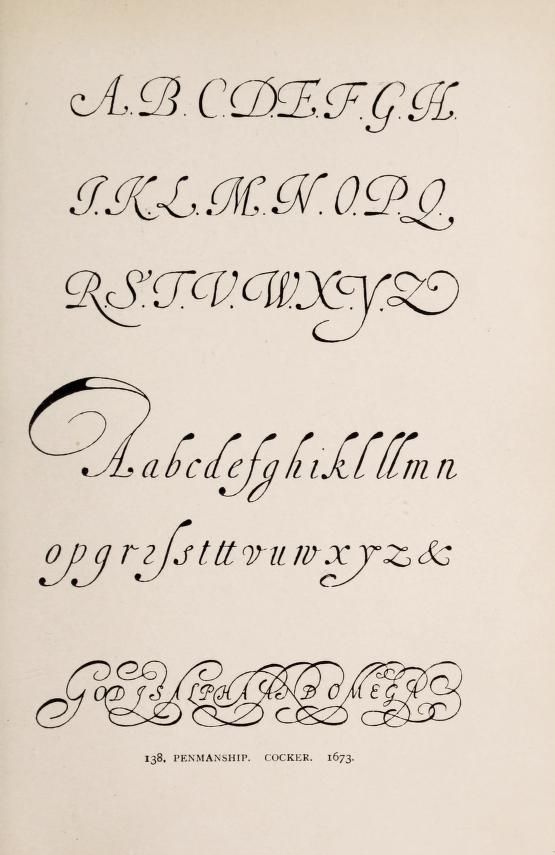 A. B. C. D. E. F. G. H.
I. K. L. M. N. O. P. Q.
R. S. T. V. W. X. Y. Z
A a b c d e f g h i k l ll m n
o p q r ꝛ ſ s t tt v u w x y z &
GOD IS ALPHA AND OMEGA
138. PENMANSHIP. COCKER. 1673.